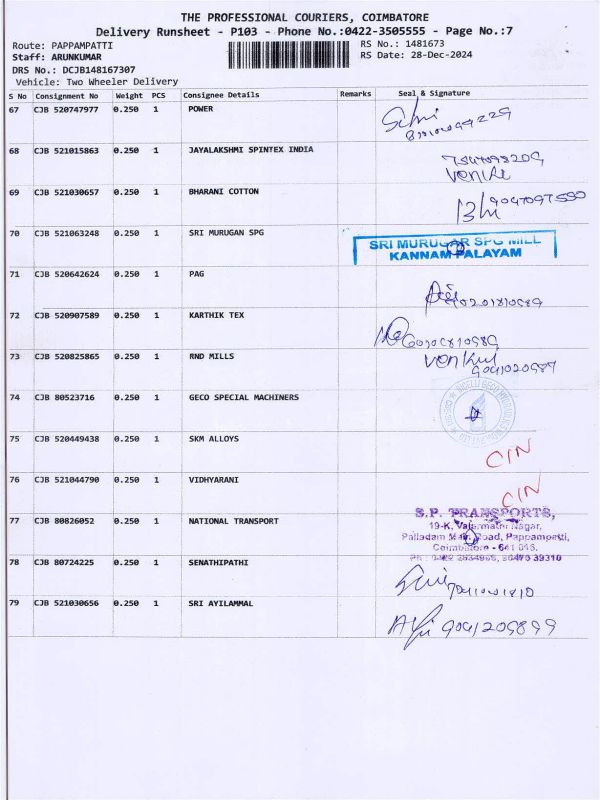 THE PROFESSIONAL COURIERS, COIMBATORE
Delivery Runsheet - P103 - Phone No.:0422-3505555 - Page No.:7
Route: PAPPAMPATTI RS No.: 1481673
Staff: ARUNKUMAR RS Date: 28-Dec-2024
DRS No.: DCJB148167307
Vehicle: Two Wheeler Delivery
S No Consignment No Weight PCS Consignee Details Remarks Seal & Signature
67 CJB 520747977 0.250 1 POWER
68 CJB 521015863 0.250 1 JAYALAKSHMI SPINTEX INDIA
69 CJB 521030657 0.250 1 BHARANI COTTON
70 CJB 521063248 0.250 1 SRI MURUGAN SPG
SRI MURUGAR SPG MILL
KANNAMPALAYAM
71 CJB 520642624 0.250 1 PAG
72 CJB 520907589 0.250 1 KARTHIK TEX
73 CJB 520825865 0.250 1 RND MILLS
74 CJB 80523716 0.250 1 GECO SPECIAL MACHINERS
75 CJB 520449438 0.250 1 SKM ALLOYS CIN
76 CJB 521044790 0.250 1 VIDHYARANI CIN
77 CJB 80826052 0.250 1 NATIONAL TRANSPORT
S.P. TRANSPORTS,
19-K, Nagar,
Palladam Main Road, Pappampatti,
Coimbatore - 641 016.
78 CJB 80724225 0.250 1 SENATHIPATHI
79 CJB 521030656 0.250 1 SRI AYILAMMAL
9041209899